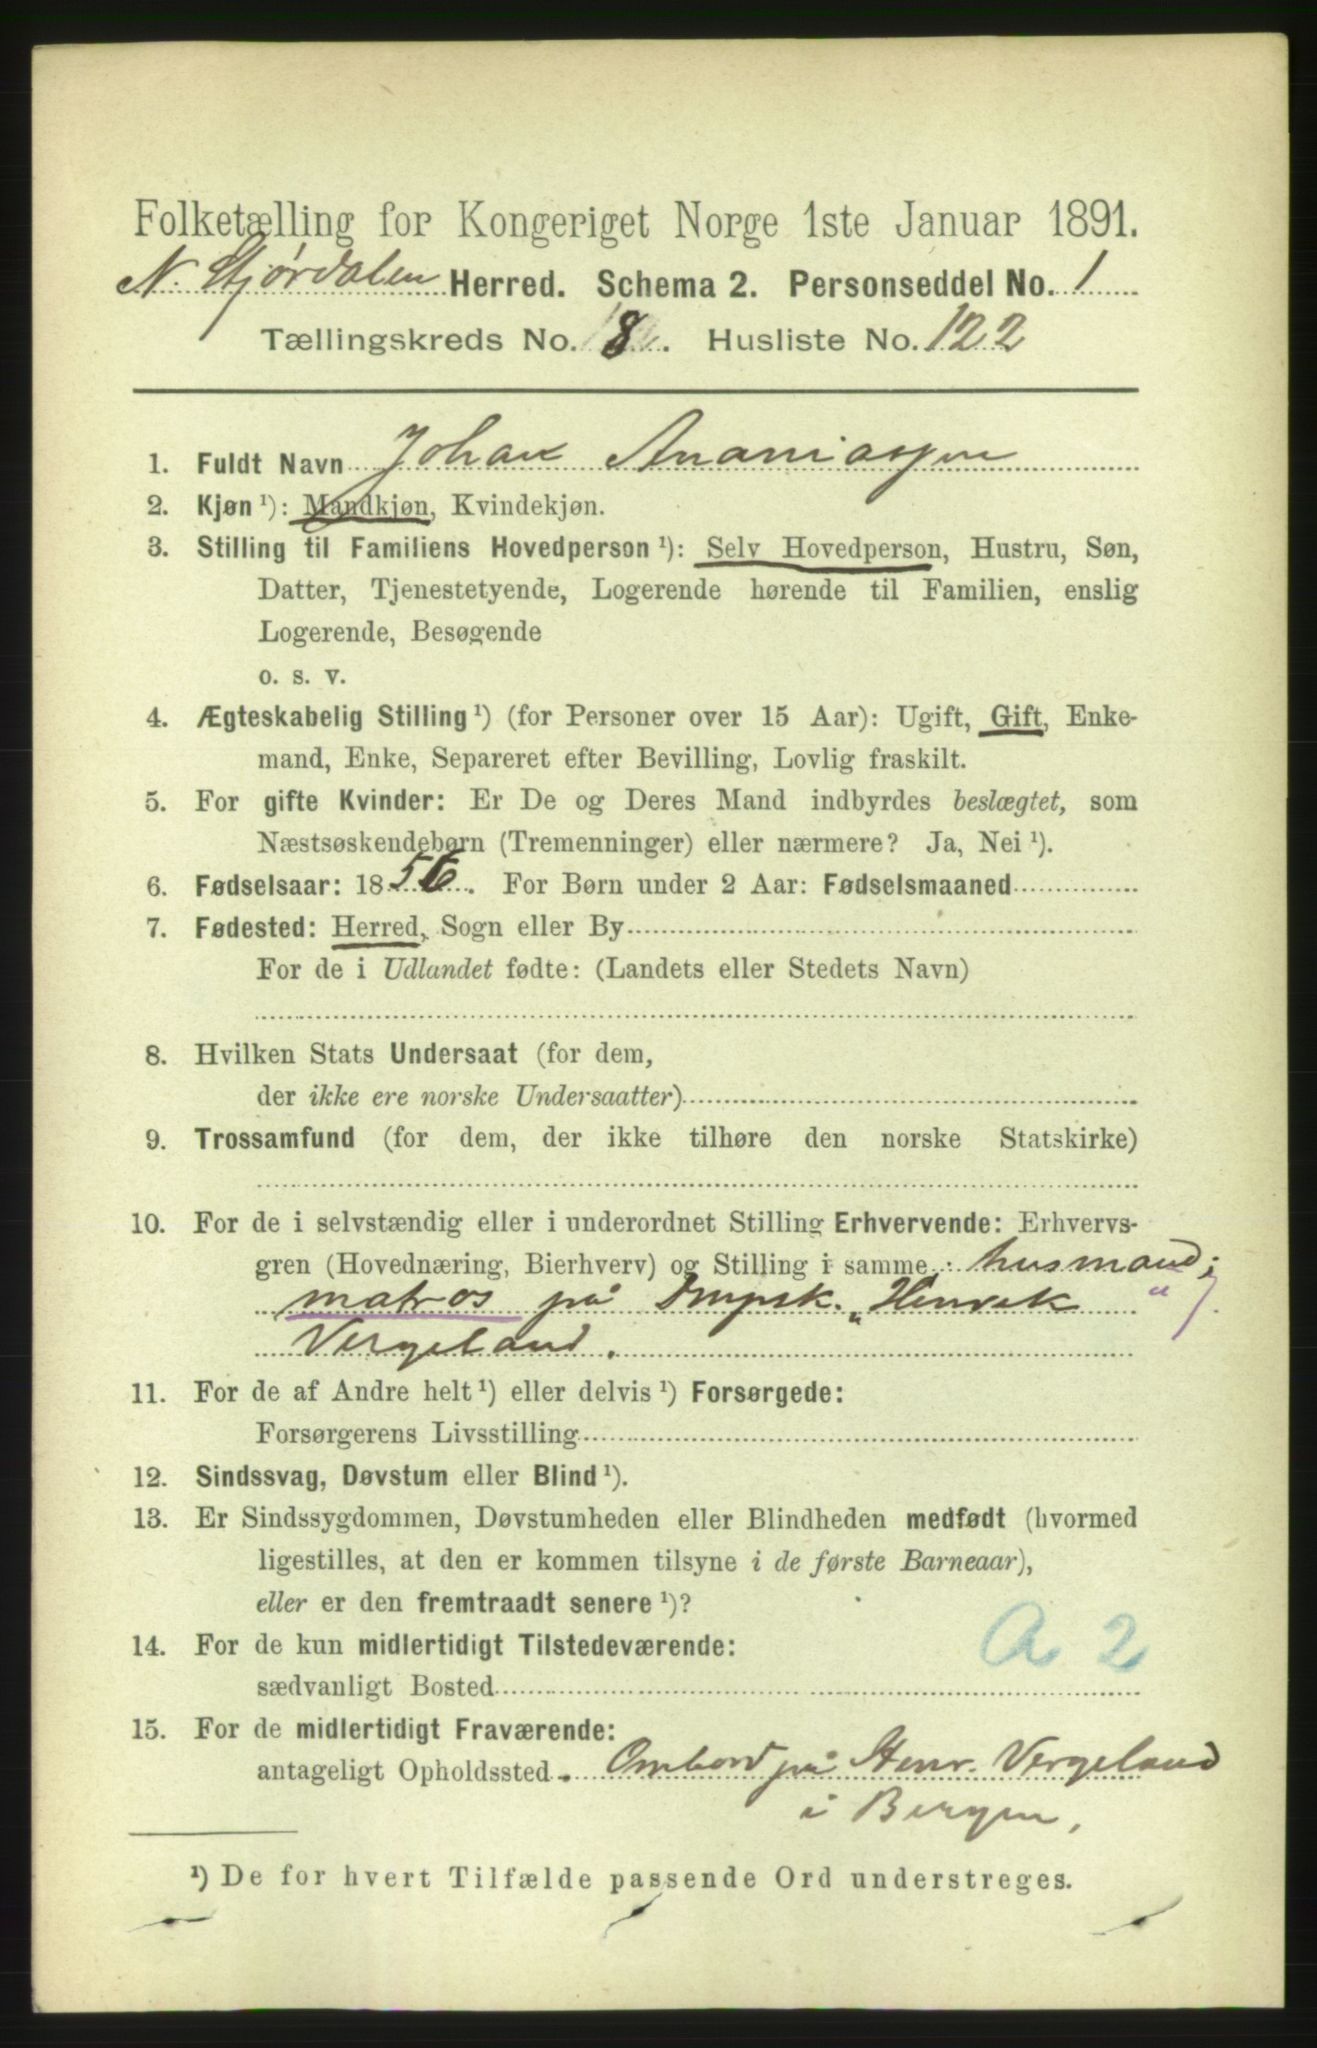 Folketælling for Kongeriget Norge 1ste Januar 1891.
N. Stjørdalen Herred. Schema 2. Personseddel No. 1
Tællingskreds No. 8. Husliste No. 122
1. Fuldt Navn Johan Ananiassen
2. Kjøn ¹): Mandkjøn, Kvindekjøn.
3. Stilling til Familiens Hovedperson ¹): Selv Hovedperson, Hustru, Søn,
Datter, Tjenestetyende, Logerende hørende til Familien, enslig
Logerende, Besøgende
o. s. v.
4. Ægteskabelig Stilling ¹) (for Personer over 15 Aar): Ugift, Gift, Enke-
mand, Enke, Separeret efter Bevilling, Lovlig fraskilt.
5. For gifte Kvinder: Er De og Deres Mand indbyrdes beslægtet, som
Næstsøskendebørn (Tremenninger) eller nærmere? Ja, Nei ¹).
6. Fødselsaar: 1856. For Børn under 2 Aar: Fødselsmaaned
7. Fødested: Herred, Sogn eller By
For de i Udlandet fødte: (Landets eller Stedets Navn)
8. Hvilken Stats Undersaat (for dem,
der ikke ere norske Undersaatter)
9. Trossamfund (for dem, der ikke tilhøre den norske Statskirke)
10. For de i selvstændig eller i underordnet Stilling Erhvervende: Erhvervs-
gren (Hovednæring, Bierhverv) og Stilling i samme: husmand;
matros på Dmpsk. „Henrik
Vergeland.
11. For de af Andre helt ¹) eller delvis ¹) Forsørgede:
Forsørgerens Livsstilling
12. Sindssvag, Døvstum eller Blind ¹).
13. Er Sindssygdommen, Døvstumheden eller Blindheden medfødt (hvormed
ligestilles, at den er kommen tilsyne i de første Barneaar),
eller er den fremtraadt senere ¹)?
A 2
14. For de kun midlertidigt Tilstedeværende:
sædvanligt Bosted
15. For de midlertidigt Fraværende:
antageligt Opholdssted. Ombord på Henr. Vergeland
i Bergen,
¹) De for hvert Tilfælde passende Ord understreges.